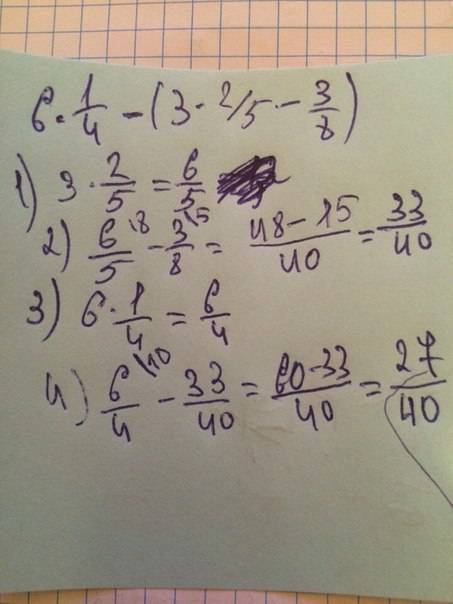 6 · 1/4 - (3 · 2/5 - 3/8)
1) 3 · 2/5 = 6/5
2) 6/5 \8 - 3/8 \5 = (48-15)/40 = 33/40
3) 6 · 1/4 = 6/4
4) 6/4 \10 - 33/40 = (60-33)/40 = 27/40